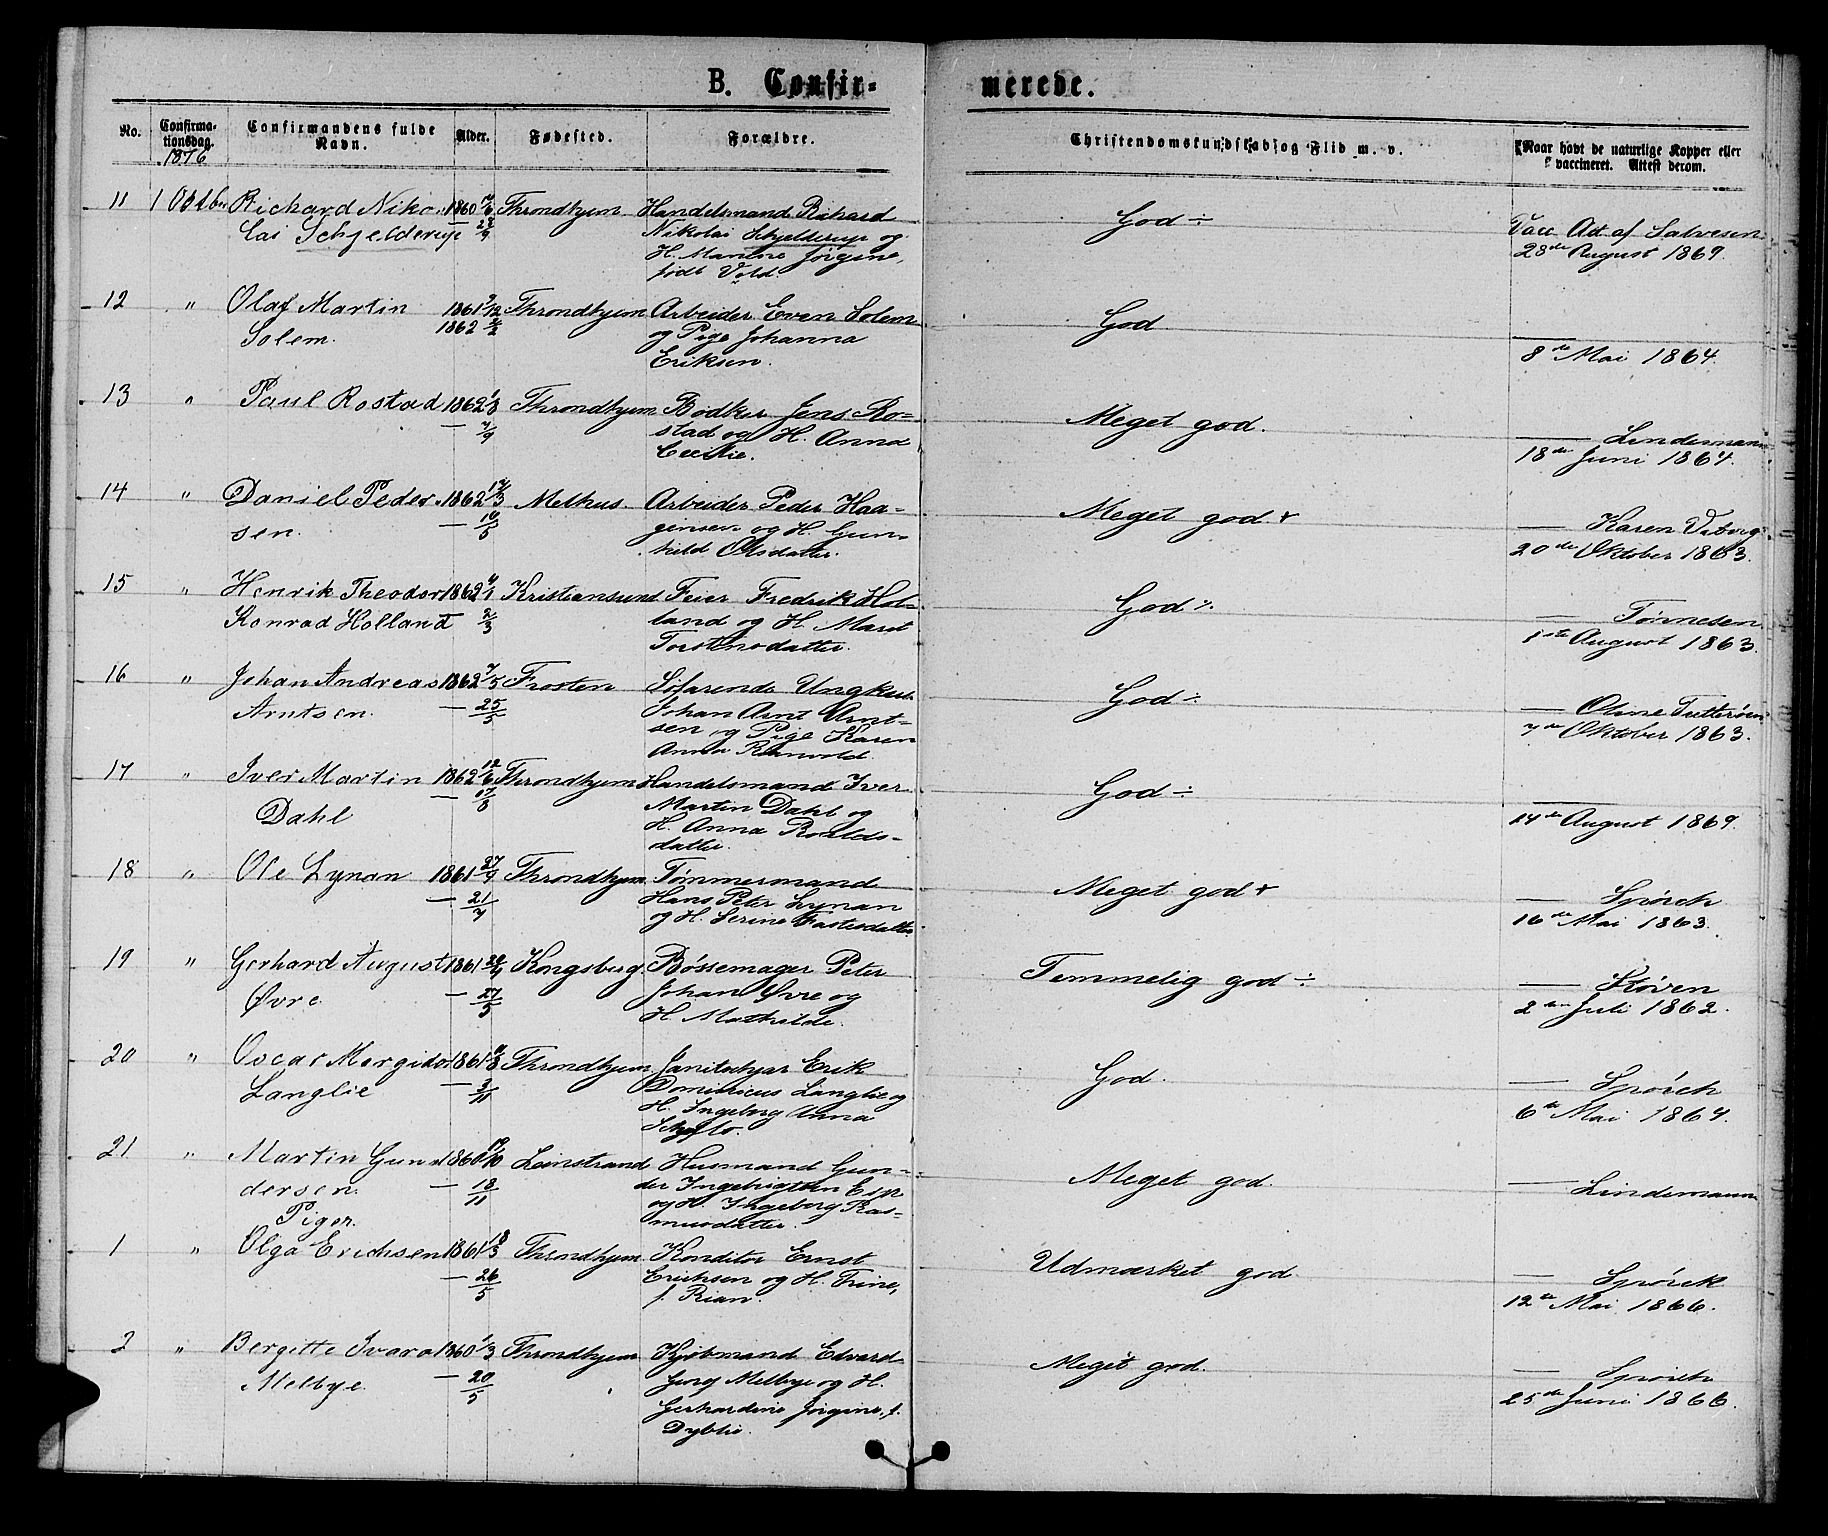 B. Confir-
merede.
No.
Confirma-
tionsdag.
1876
Confirmandens fulde
Navn.
Alder.
Fødested.
Forældre.
Christendomskundskab og Flid m. v.
Naar havt de naturlige Kopper eller
vaccineret. Attest derom.
11 1 Oktbr Richard Niko- 1860 Throndhjem Handelsmand Richard
lai Schjelderup Nikolai Schjelderup og
H. Marine Jørgine,
født Vold.
God ÷
Vacc Att af Salvesen
28de August 1869.
12 " Olaf Martin 1861 9/12 Throndhjem Arbeider Even Solem
Solem. 1862 og Pige Johanna
Eriksen.
God
— 8de Mai 1864.
13 " Paul Rostad 1862 Throndhjem Bødker Jens Ro-
— 7/9 stad og H. Anna
Cecilie.
Meget god.
— Lindemann
18de Juni 1864.
14 " Daniel Peder- 1862 17/3 Melhus. Arbeider Peder Haa-
sen. — gensen og H. Gun-
hild Olsdatter.
Meget god +
— Karen
20de Oktober 1863.
15 " Henrik Theodor 1862 Kristiansund Feier Fredrik Hol-
Konrad Holland 2/3 land og H. Maret
Torstensdatter.
God ÷
— Tønnesen
1ste August 1863.
16 " Johan Andreas 1862 7/5 Frosten Søfarende Ungkarl
Arntsen. — 25/5 Johan Arnt Arnt-
sen og Pige Karen
Anna
God ÷
—
7de Oktober 1863.
17 " Iver Martin 1862 12/6 Throndhjem Handelsmand Iver
Dahl — 17/8 Martin Dahl og
H. Anna
datter.
God ÷
— 14de August 1869.
18 " Ole Lynan 1861 Throndhjem Tømmermand
— 21/7 Hans Peter Lynan
og H. Serine
Meget god +
— Spørck
16de Mai 1863.
19 " Gerhard August 1861 Kongsberg. Bøssemager Peter
Øvre — 27/5 Johan Øvre og
H. Mathilde.
Temmelig god ÷
— Støren
2den Juli 1862.
20 " Oscar Mergidor 1861 Throndhjem Janitschar Erik
Langlie — 3/11 Dominicus Langlie og
H. Ingeborg Anna
God.
— Spørck
6te Mai 1864.
21 " Martin Gun- 1860 Leinstrand Husmand Gun-
dersen. — 18/11 der Ingebrigtsen Esp
og H. Ingeborg Ras-
musdatter.
Meget god.
— Lindemann
Piger.
1 " Olga Erichsen 1861 18/3 Throndhjem Konditor Ernst
— 26/5 Erichsen og H. Trine,
f. Rian.
Udmærket god
— Spørck
12te Mai 1866.
2 " Bergitte Ivara 1860 1/3 Throndhjem Kjøbmand Edvard
Melbye. — 20/5 Georg Melbye og H.
Gerhardine Jørgine, f.
Dyblie.
Meget god.
— Spørck
25de Juni 1866.